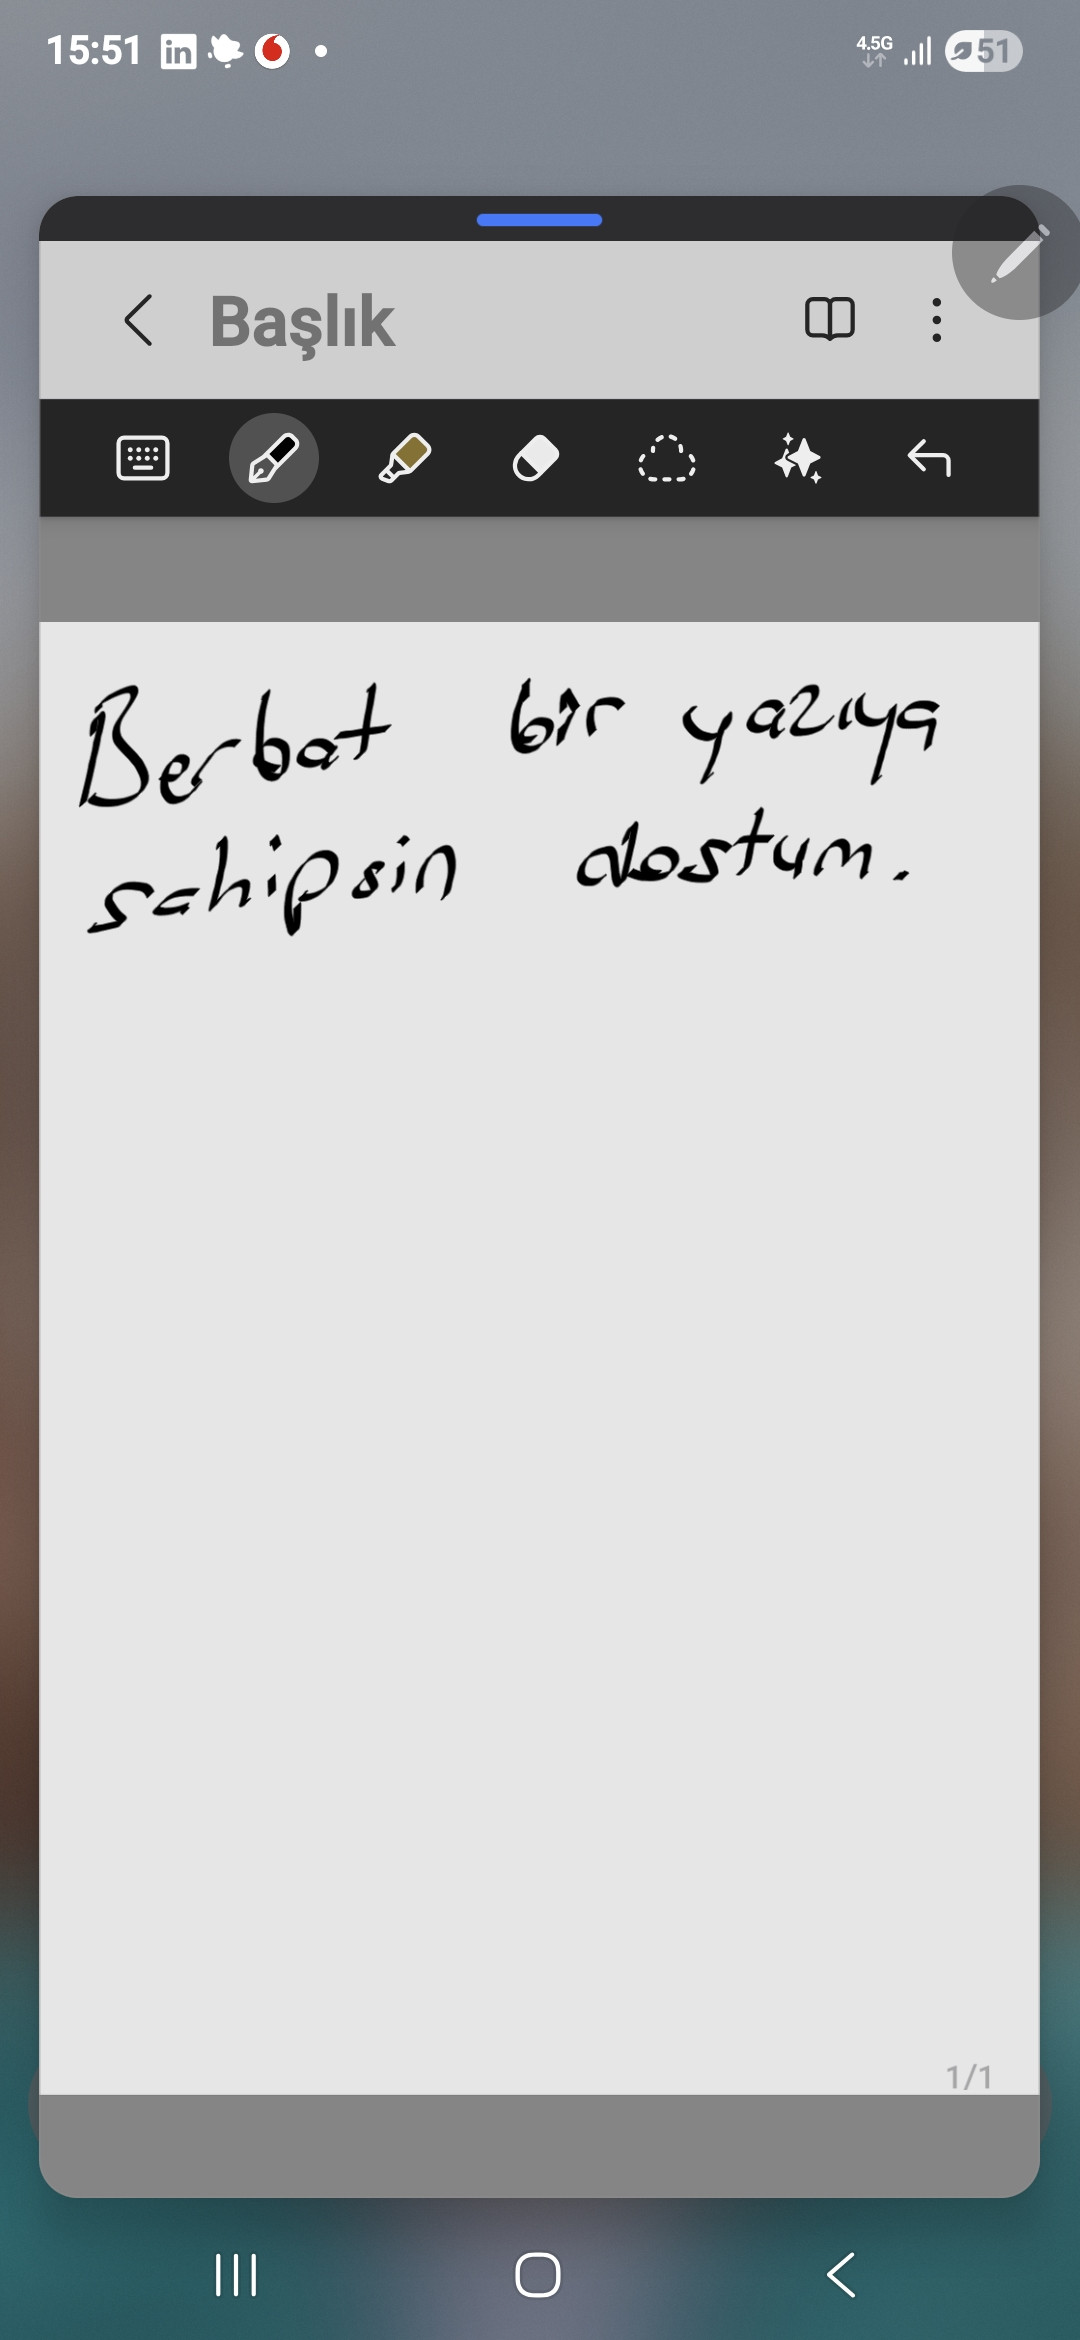 15:51 in 4.5G 51
Başlık
Berbat bir yazıya
sahipsin dostum.
1/1